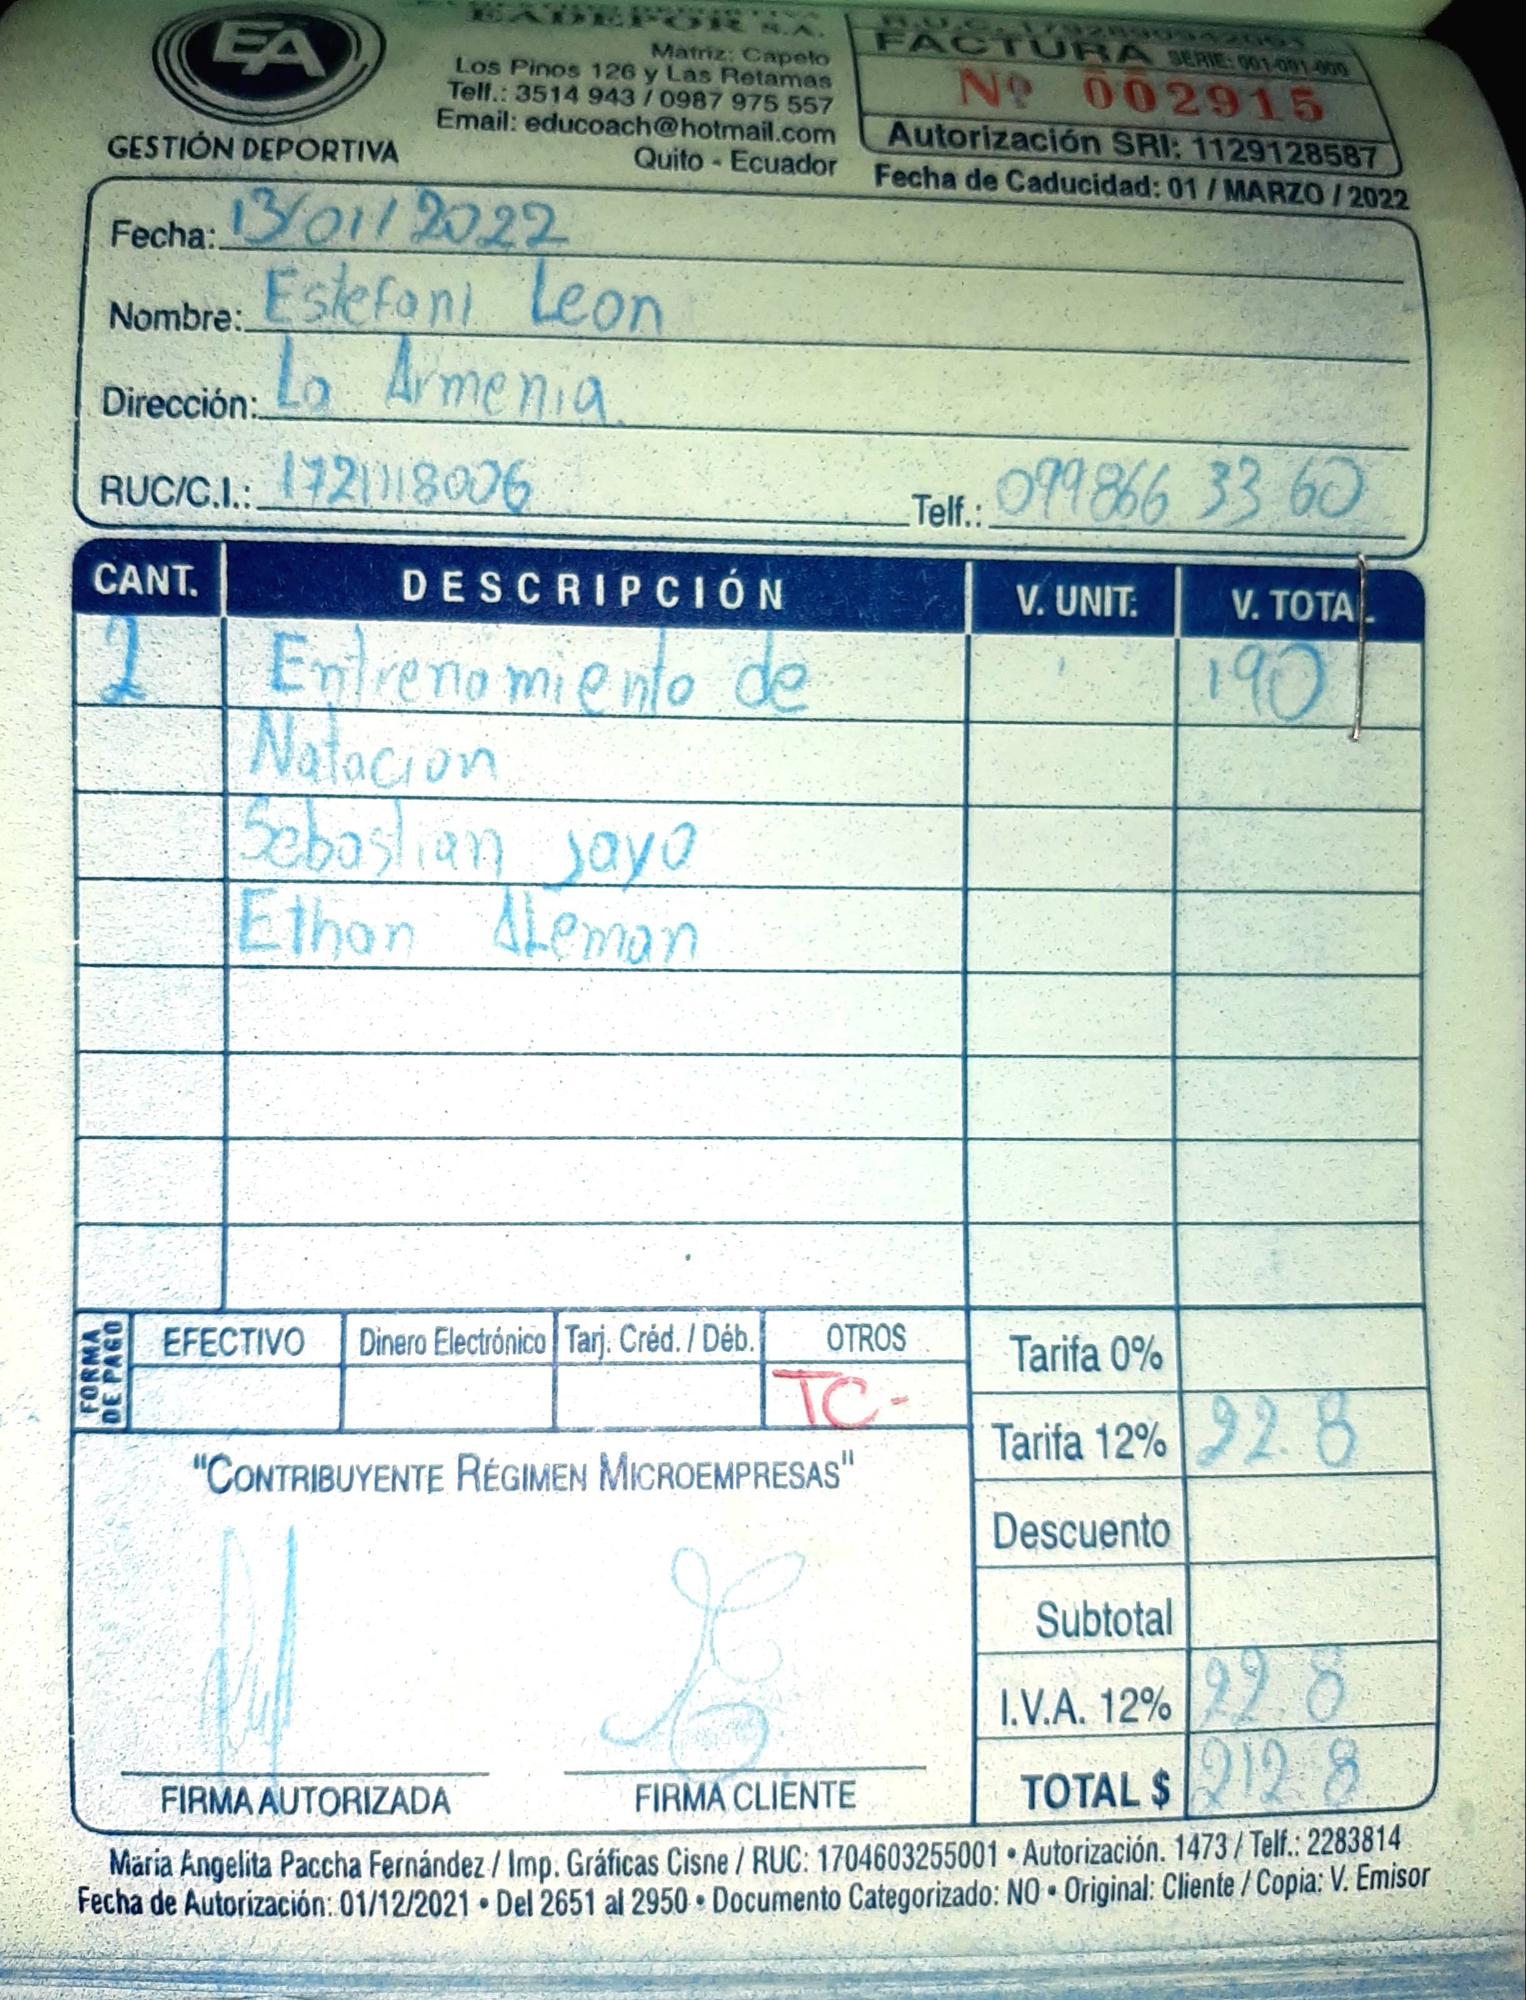 EA
GESTIÓN DEPORTIVA
EADEPOR S.A.
Matriz: Capelo
Los Pinos 126 y Las Retamas
Telf.: 3514 943 / 0987 975 557
Email: educoach@hotmail.com
Quito - Ecuador
FACTURA SERIE: 001-001-000
Nº 002915
Autorización SRI: 1129128587
Fecha de Caducidad: 01 / MARZO / 2022
Fecha: 13/01/2022
Nombre: Estefani Leon
Dirección: La Armenia
RUC/C.I.: 1721118006 Telf.: 099866 33 60
CANT. DESCRIPCIÓN V. UNIT. V. TOTAL
2 Entrenamiento de 190
Natacion
Sebastian Jayo
Ethan ALeman
FORMA DE PAGO EFECTIVO Dinero Electrónico Tarj. Créd. / Déb. OTROS
TC-
Tarifa 0%
Tarifa 12% 22.8
Descuento
Subtotal
I.V.A. 12% 22.8
TOTAL $ 212.8
"CONTRIBUYENTE RÉGIMEN MICROEMPRESAS"
FIRMA AUTORIZADA FIRMA CLIENTE
María Angelita Paccha Fernández / Imp. Gráficas Cisne / RUC: 1704603255001 • Autorización. 1473 / Telf.: 2283814
Fecha de Autorización: 01/12/2021 • Del 2651 al 2950 • Documento Categorizado: NO • Original: Cliente / Copia: V. Emisor